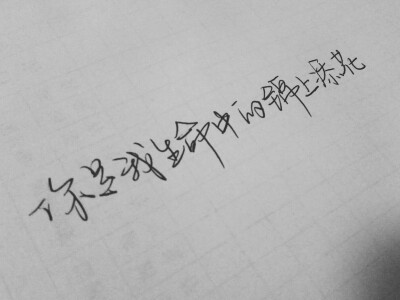 你是我生命中的锦上添花